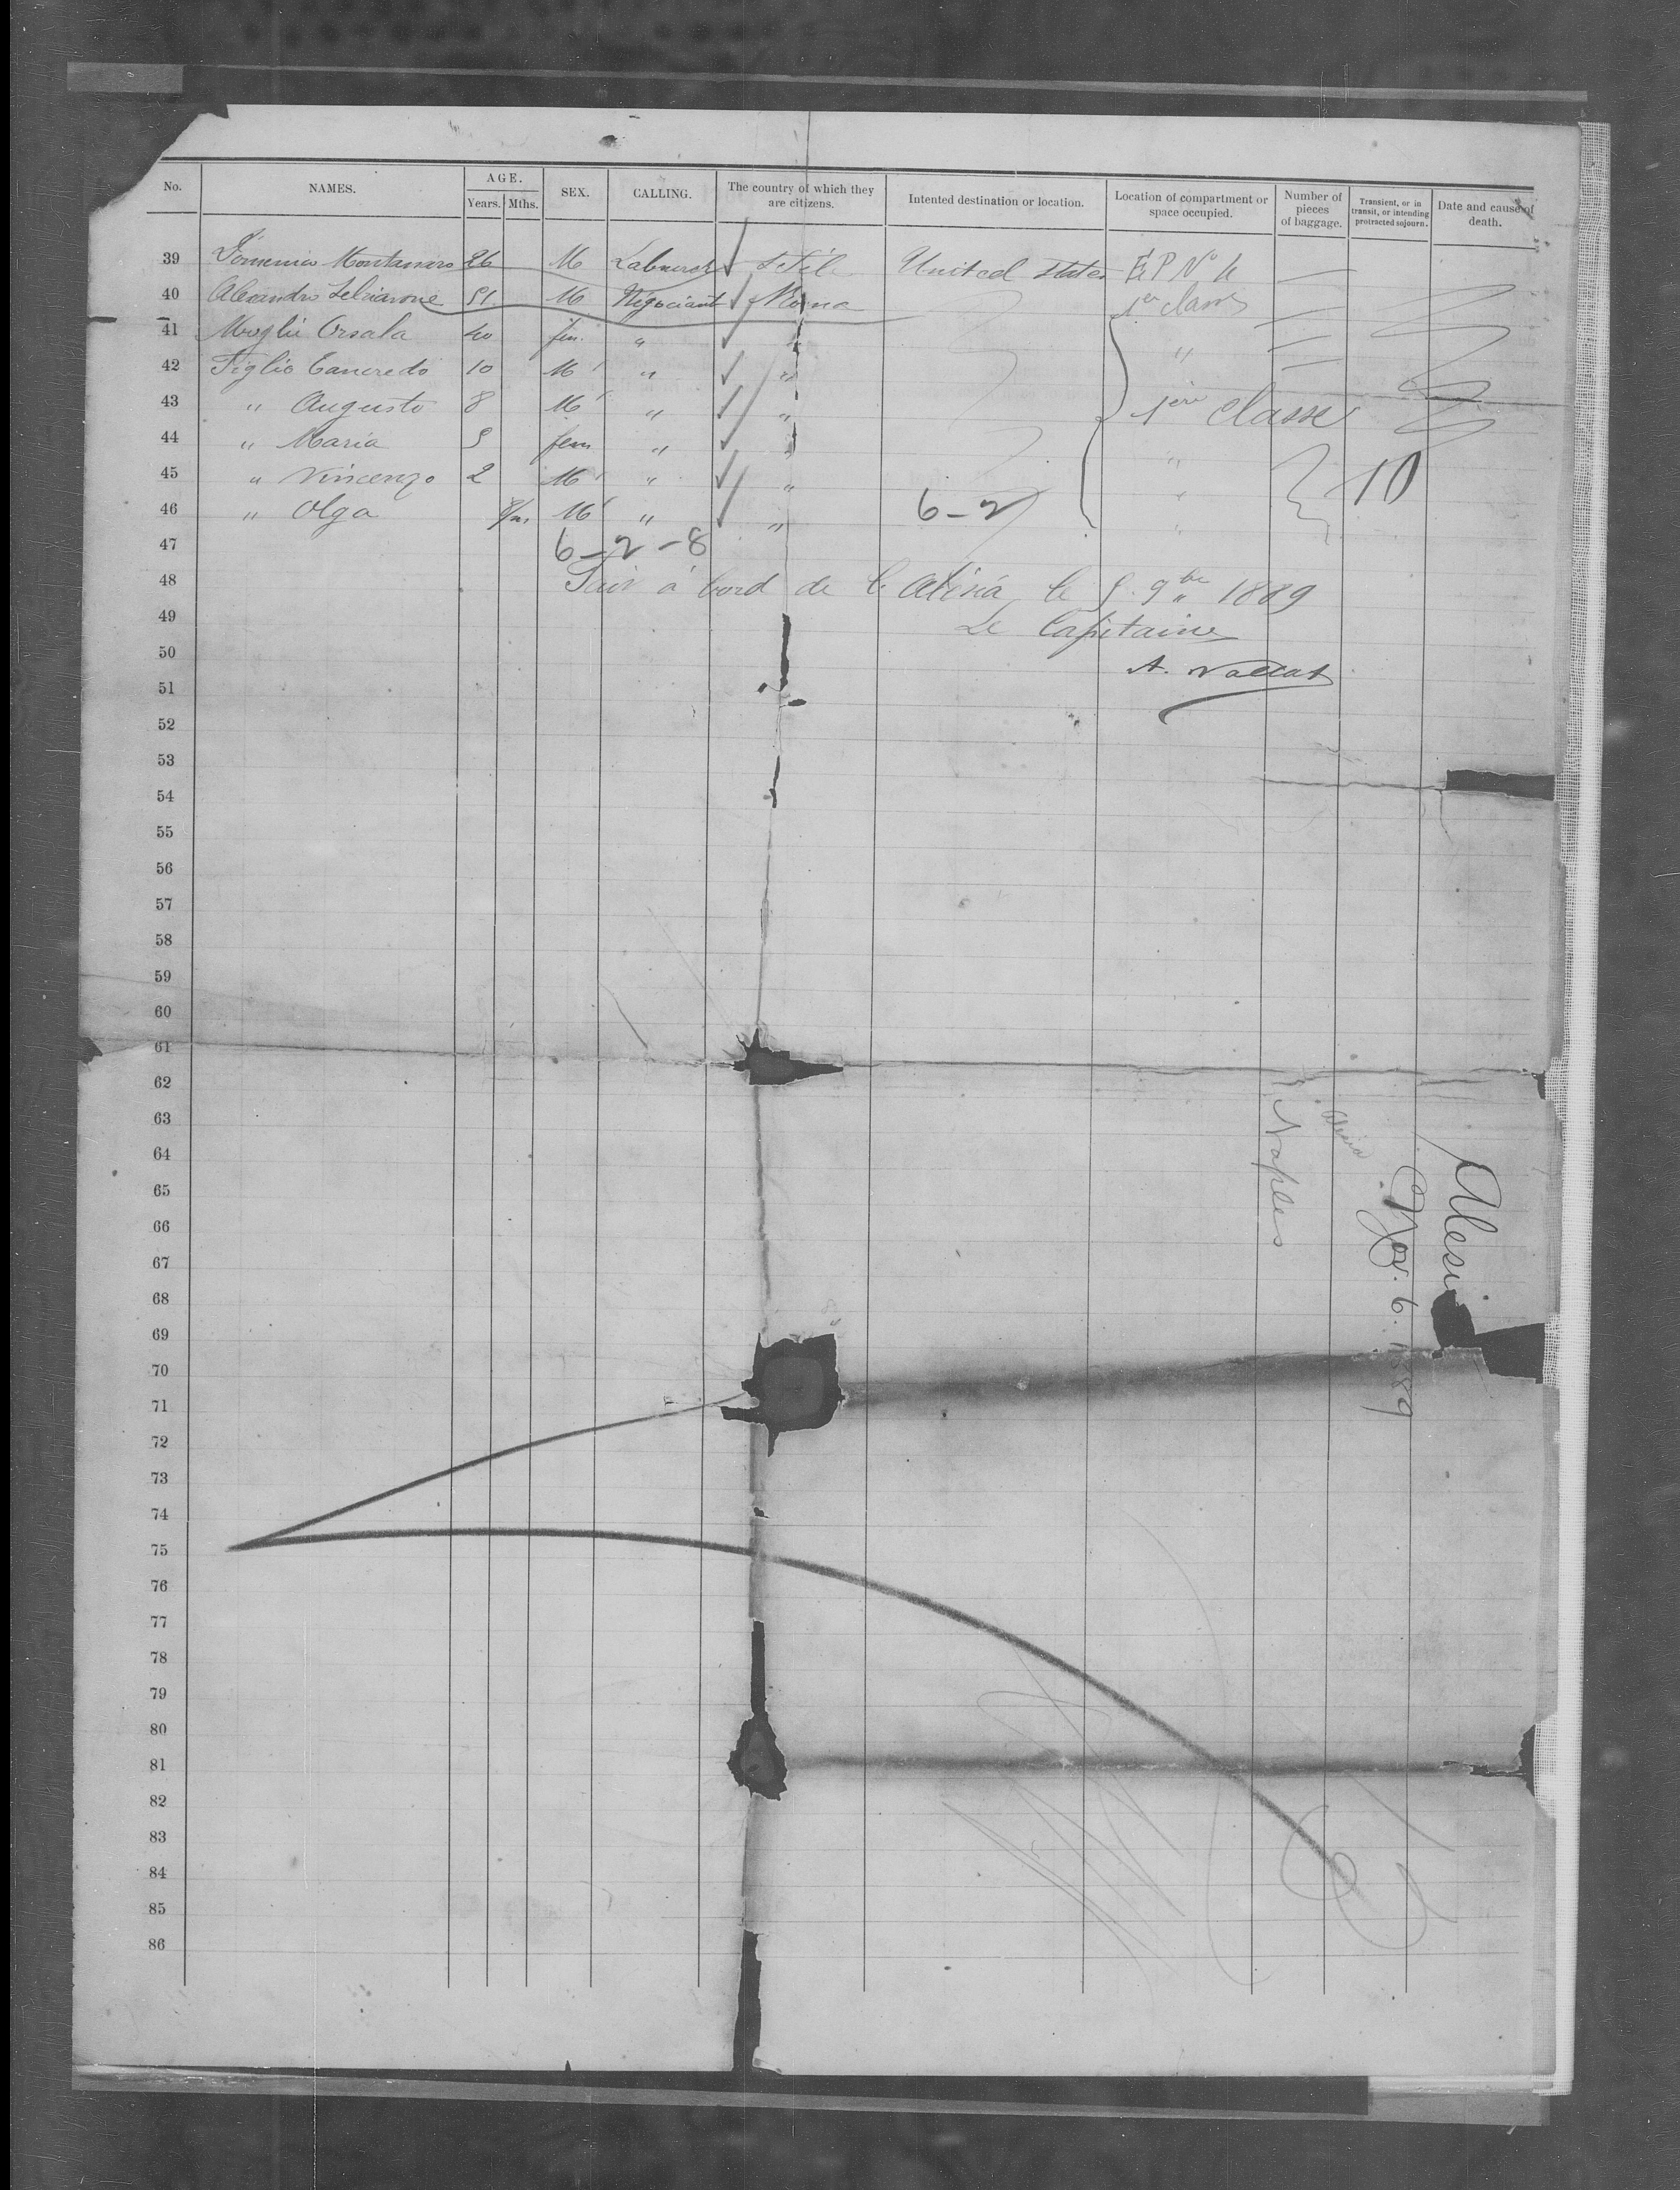 No. NAMES. AGE. Years. Mths. SEX. CALLING. The country of which they are citizens. Intented destination or location. Location of compartment or space occupied. Number of pieces of baggage. Transient, or in transit, or intending protracted sojourn. Date and cause of death.
39 Domenico Montanaro 26 M Labourer United States E P No 4
40 Alexandro 51 M Négociant Roma 1er classe
41 Moglie Orsala 40 fem. "
42 Figlio Cancredo 10 M " "
43 " Augusto 8 M " " 1ère classe
44 " Maria 5 fem " " "
45 " Vincenzo 2 M " " " 10
46 " Olga 8/m. M " " 6-2 "
47 6-2-8
48 à bord de l'Alésia, le 5 9bre 1889
49 Le Capitaine
50 A.
51
52
53
54
55
56
57
58
59
60
61
62
63
64
65
66
67
68
69
70
71
72
73
74
75
76
77
78
79
80
81
82
83
84
85
86
Alesi
Nov. 6. 1889
Naples